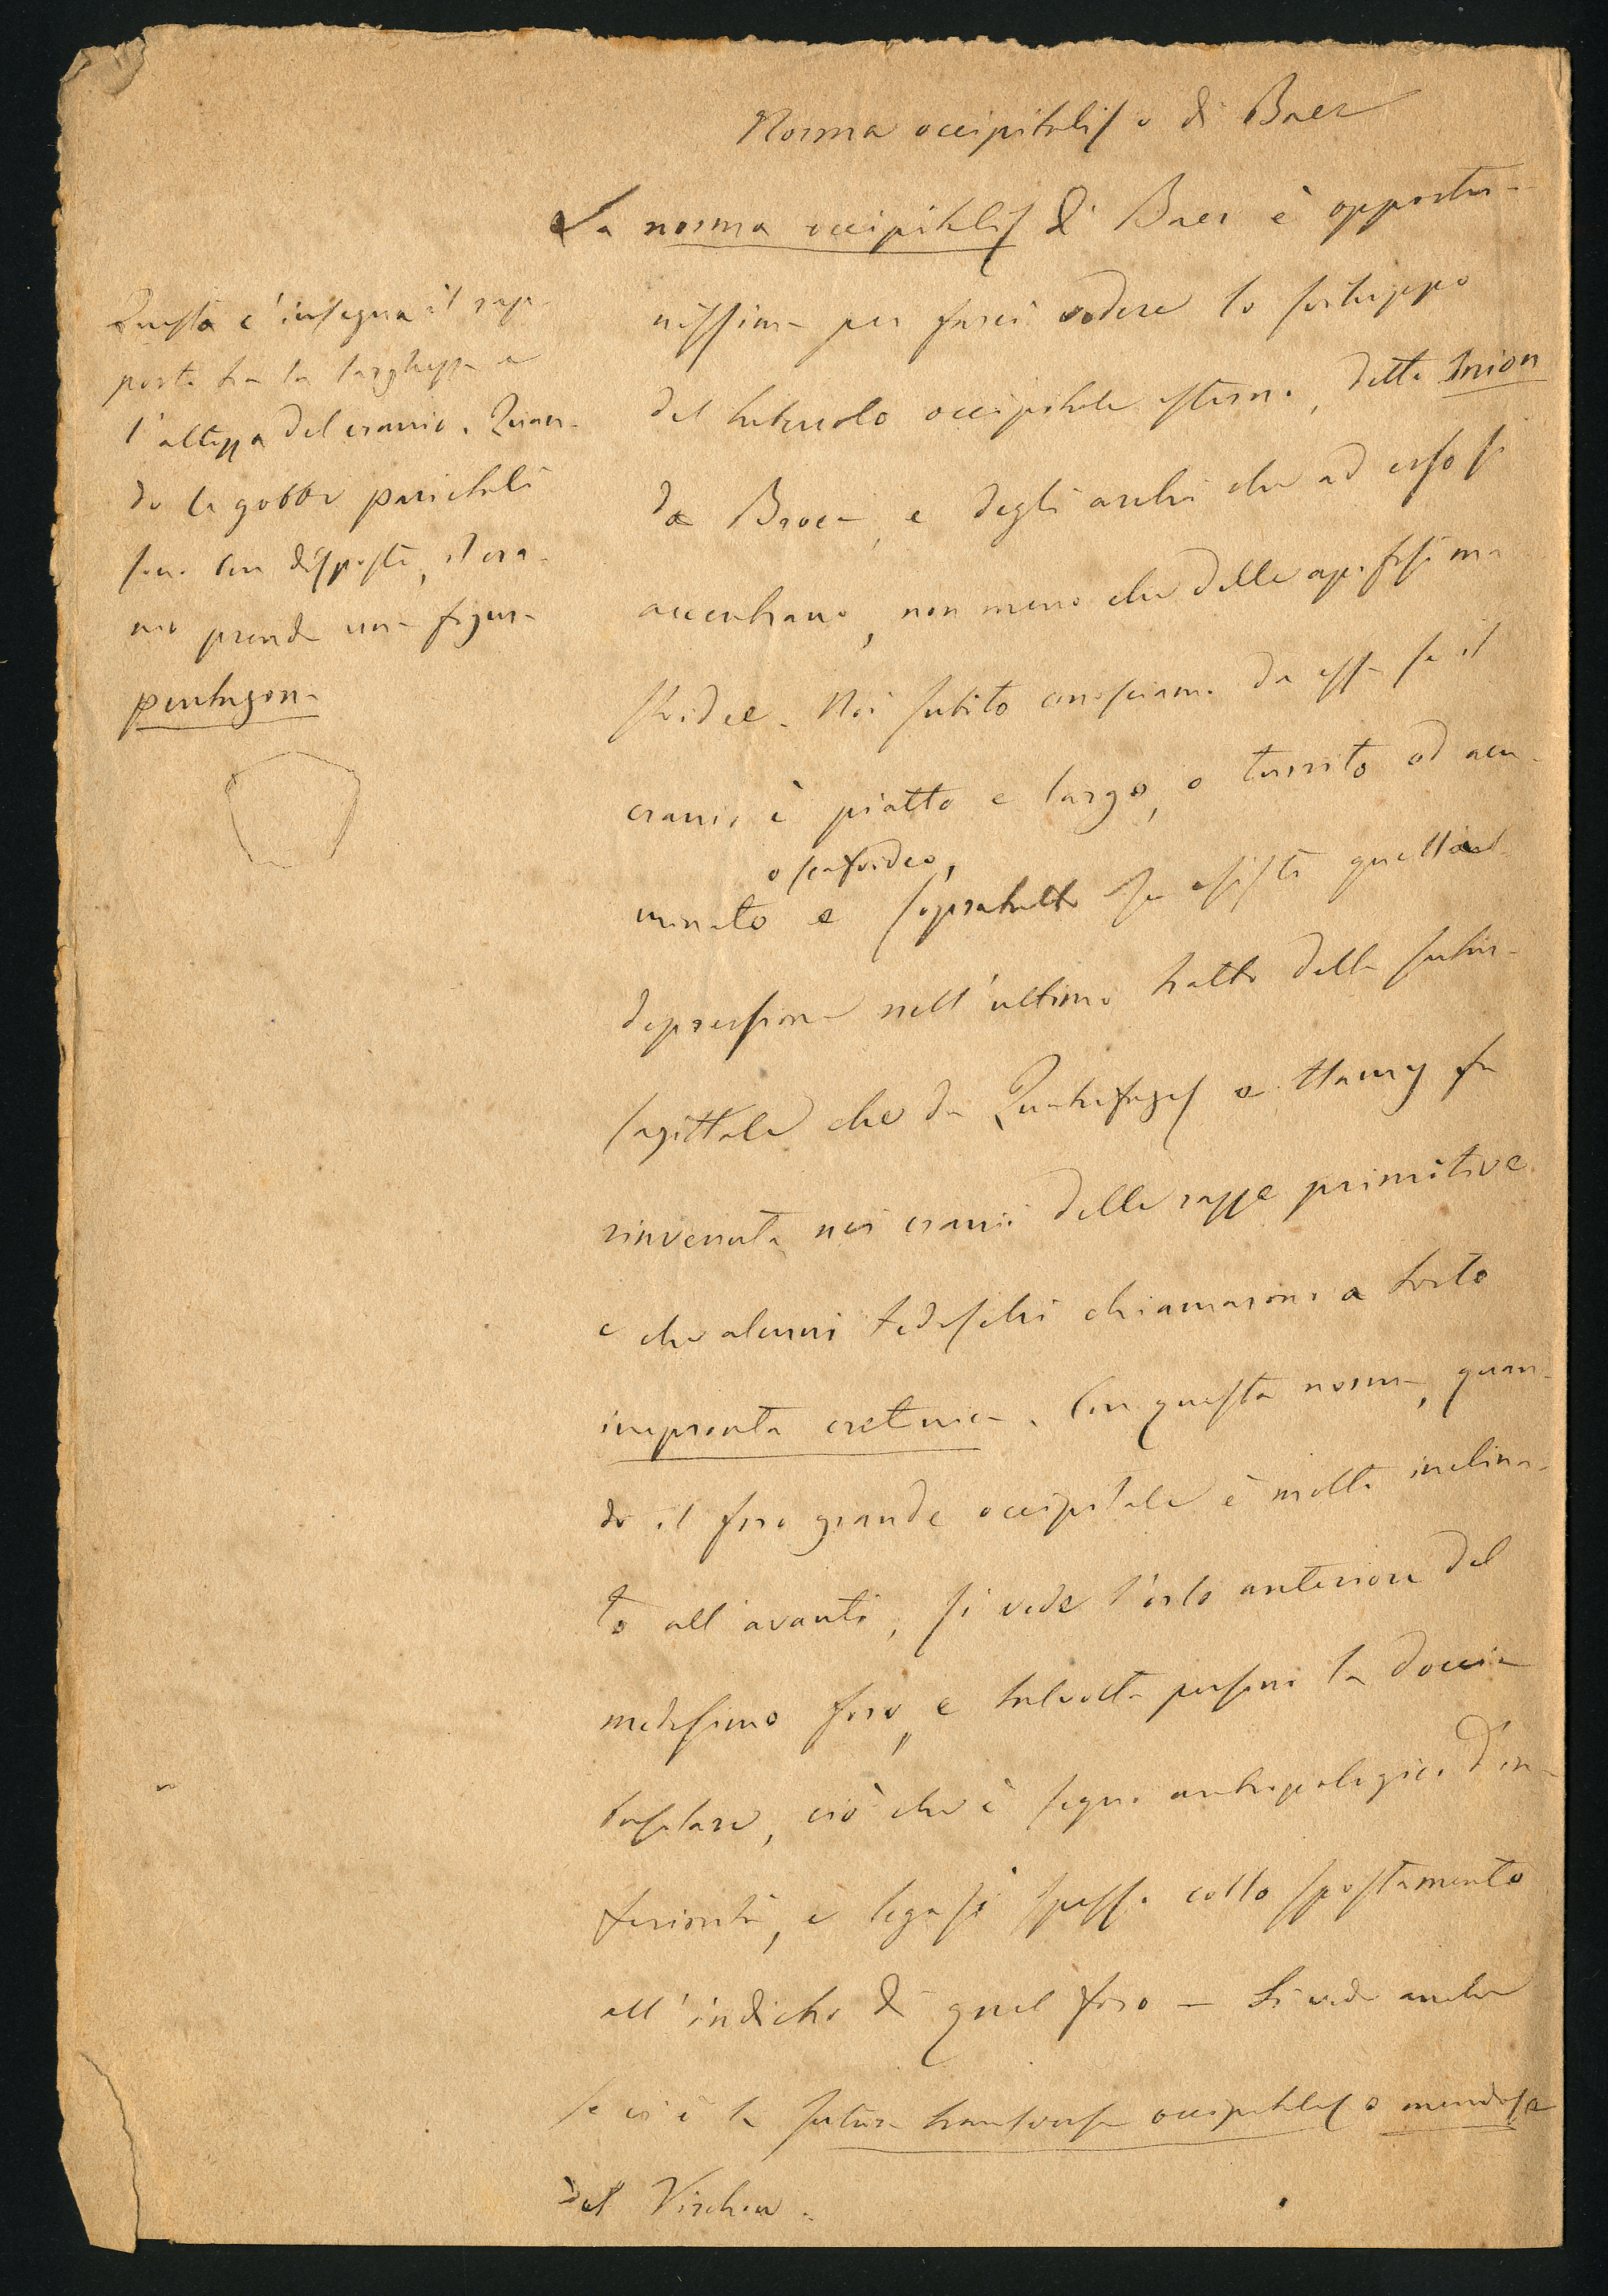 Norma occipitalis o di Baer
La norma occipitalis di Baer è opportu-
nissima per farci vedere lo sviluppo
del tubercolo occipitale esterno, detto Inion
da Broca, e degli archi che ad esso si
accentrano, non meno che delle apofisi ma
stoidee. Noi subito conosciamo da essa se il
cranio è piatto e largo, o turrito od acu-
o scafoideo,
minato e sopratutto se esiste quella
depressione nell'ultimo tratto della sutura
sagittale che da Quatrefages e Hamy fu
rinvenuta nei crani delle razze primitive
e che alcuni tedeschi chiamarono a torto
impronta cretinica. Con questa norma, quan-
do il foro grande occipitale è molto inclina-
to all'avanti, si vede l'orlo anteriore del
medesimo foro, e talvolta persino la doccia
basilare, ciò che è segno antropologico d'in-
feriorità, e legasi spesso collo spostamento
all'indietro di quel foro – Si vede anche
se vi è la sutura transversa occipitalis o mendosa
del Virchow.
Questa c'insegna il rap-
porto tra la larghezza e
l'altezza del cranio. Quan-
do le gobbe parietali
sono ben disposte, il cra-
nio prende una figura
pentagona